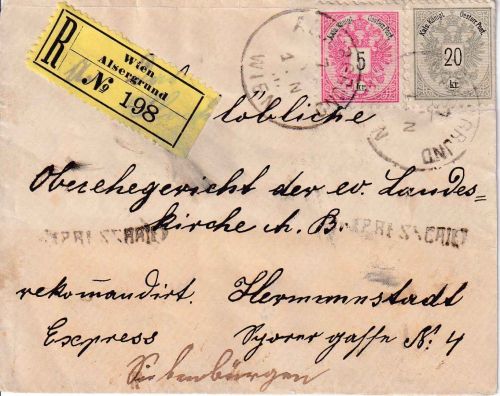 R
Wien
Alsergrund
No 198
Kais. Königl. Oesterr. Post.
5
kr.
Kais. Königl. Oesterr. Post.
20
kr.
WIEN
löbliche
Oberehegericht der ev. Landes-
kirche A. B.
EXPRESSBRIEF EXPRESSBRIEF
rekom̄andirt. Hermannstadt
Express Sporergasse No. 4
Siebenbürgen